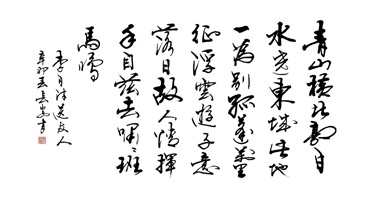 青山橫北郭白
水遶東城此地
一為別孤蓬萬里
征浮雲遊子意
落日故人情揮
手自茲去嘯々班
馬鳴
李白詩送友人
辛卯春